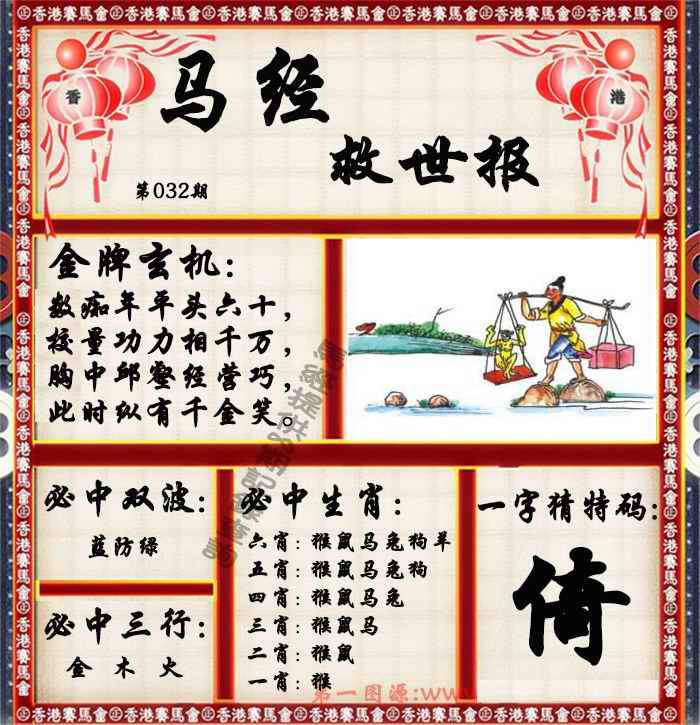 香港賽馬會
香
港
马经
救世报
第032期
金牌玄机：
数痴年平头六十，
校量功力相千万，
胸中邱壑经营巧，
此时纵有千金笑。
必中双波：
蓝防绿
必中三行：
金 木 火
必中生肖：
六肖：猴鼠马兔狗羊
五肖：猴鼠马兔狗
四肖：猴鼠马兔
三肖：猴鼠马
二肖：猴鼠
一肖：猴
一字猜特码：
倚
第一图源:www